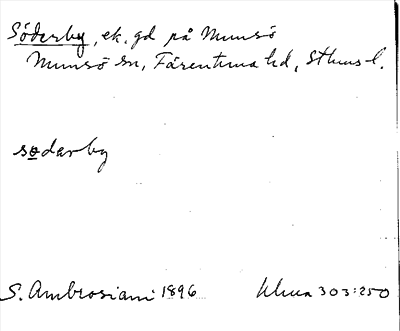 Söderby, ek. gd på Munsö
Munsö sn, Färentuna hd, Sthms l.
sɵdarby
S. Ambrosiani 1896
303:250